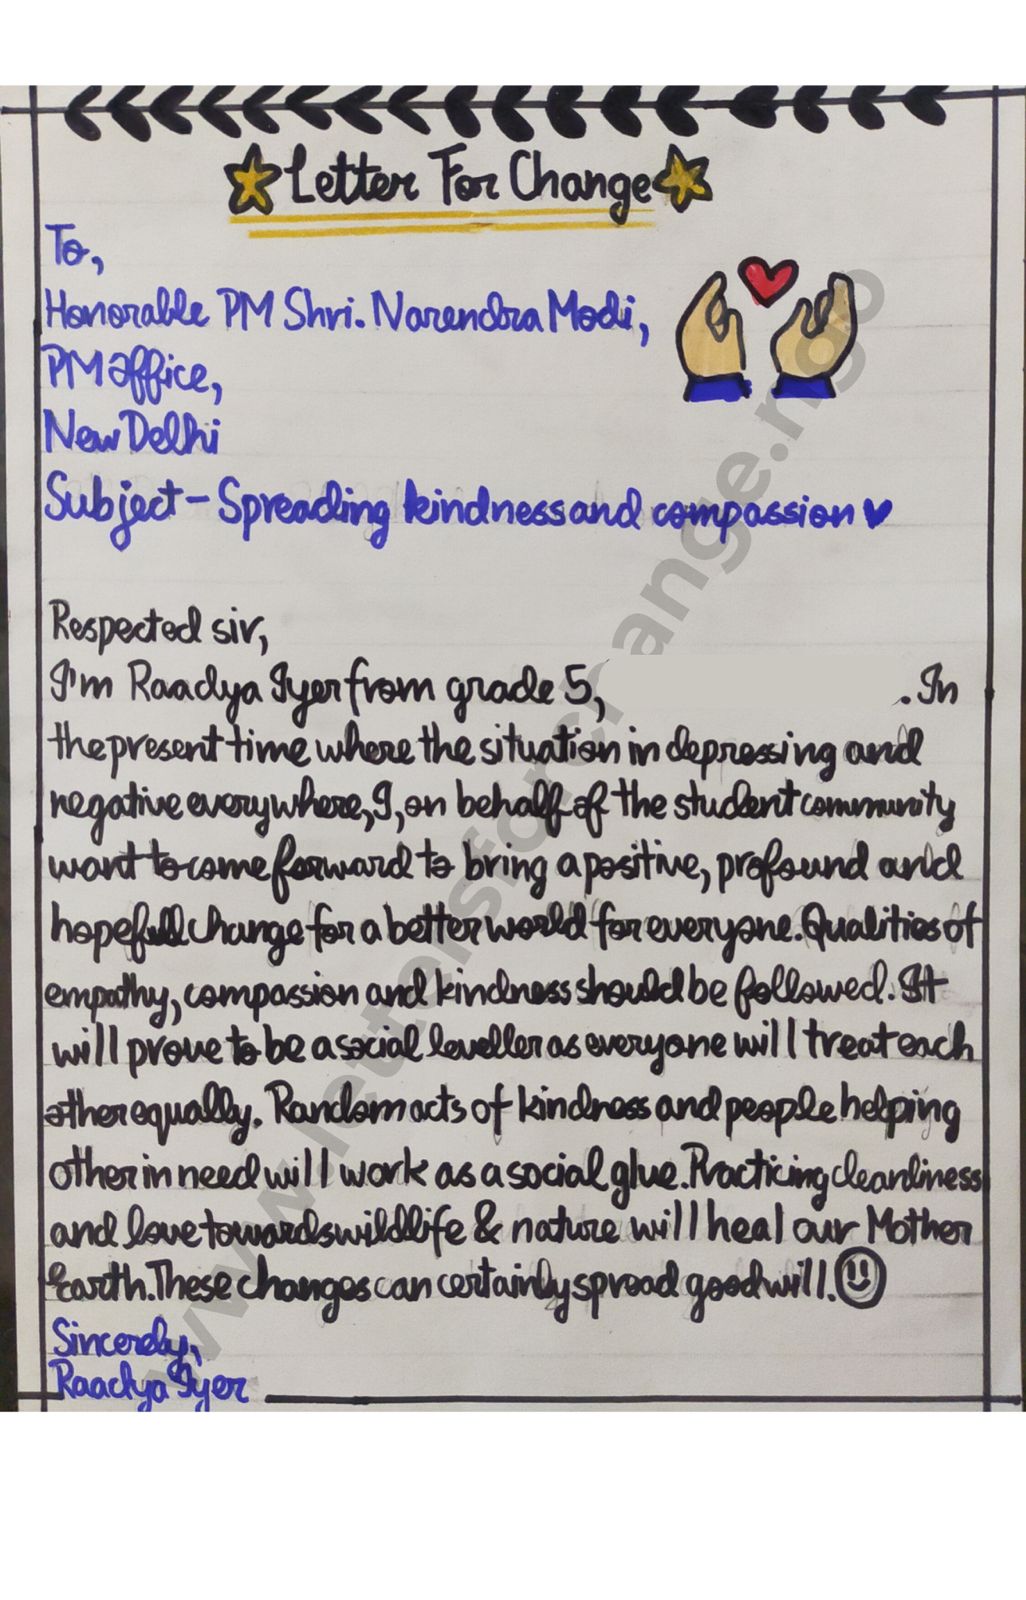 Letter For Change
To,
Honorable PM Shri. Narendra Modi,
PM office,
New Delhi
Subject - Spreading kindness and compassion
Respected sir,
I'm Raadya Iyer from grade 5, . In
the present time where the situation in depressing and
negative everywhere, I, on behalf of the student community
want to come forward to bring a positive, profound and
hopefull change for a better world for everyone. Qualities of
empathy, compassion and kindness should be followed. It
will prove to be a social leveller as everyone will treat each
other equally. Random acts of kindness and people helping
other in need will work as a social glue. Practicing cleanliness
and love towards wildlife & nature will heal our Mother
Earth. These changes can certainly spread goodwill.
Sincerely,
Raadya Iyer
www.lettersforchange.ngo